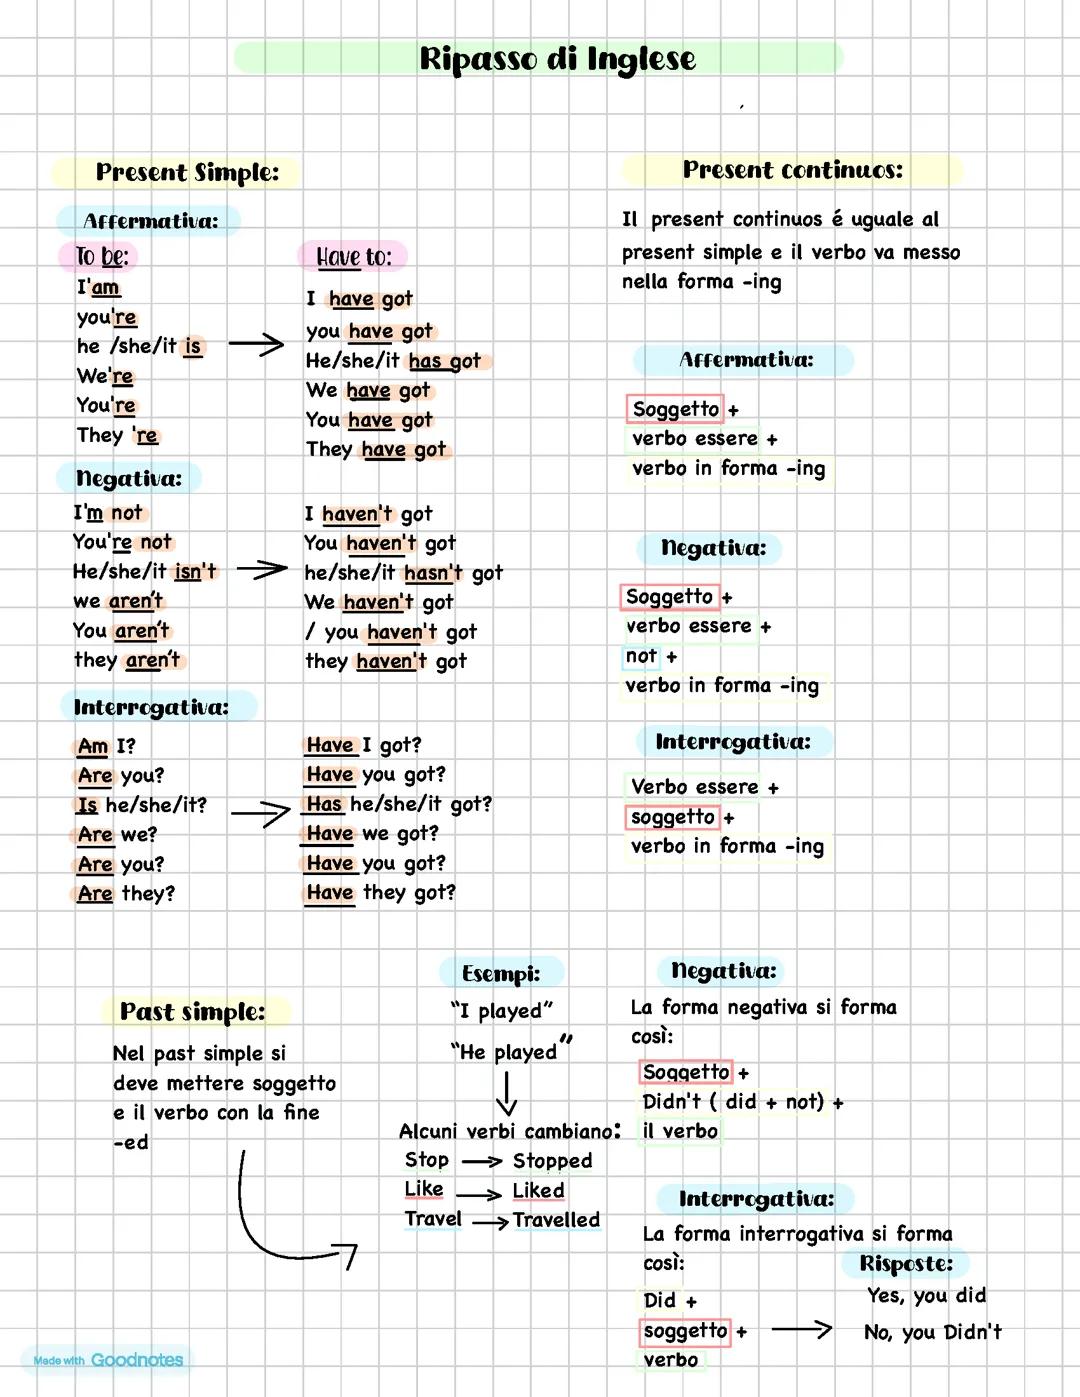 Ripasso di Inglese
Present Simple:
Affermativa:
To be:
I'am
you're
he /she/it is
We're
You're
They 're
Have to:
I have got
you have got
He/she/it has got
We have got
You have got
They have got
Negativa:
I'm not
You're not
He/she/it isn't
we aren't
You aren't
they aren't
I haven't got
You haven't got
he/she/it hasn't got
We haven't got
/ you haven't got
they haven't got
Interrogativa:
Am I?
Are you?
Is he/she/it?
Are we?
Are you?
Are they?
Have I got?
Have you got?
Has he/she/it got?
Have we got?
Have you got?
Have they got?
Present continuos:
Il present continuos é uguale al
present simple e il verbo va messo
nella forma -ing
Affermativa:
Soggetto +
verbo essere +
verbo in forma -ing
Negativa:
Soggetto +
verbo essere +
not +
verbo in forma -ing
Interrogativa:
Verbo essere +
soggetto +
verbo in forma -ing
Past simple:
Nel past simple si
deve mettere soggetto
e il verbo con la fine
-ed
Esempi:
"I played"
"He played"
Alcuni verbi cambiano:
Stop → Stopped
Like → Liked
Travel → Travelled
Negativa:
La forma negativa si forma
così:
Soggetto +
Didn't ( did + not) +
il verbo
Interrogativa:
La forma interrogativa si forma
così:
Did +
soggetto +
verbo
Risposte:
Yes, you did
No, you Didn't
Made with Goodnotes